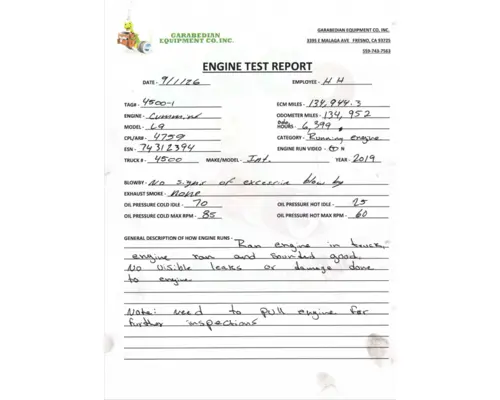 GARABEDIAN
EQUIPMENT CO. INC.
GARABEDIAN EQUIPMENT CO, INC.
3395 E MALAGA AVE FRESNO, CA 93725
559-743-7563
ENGINE TEST REPORT
DATE - 9/1/26 EMPLOYEE - H H
TAG# - 4500-1 ECM MILES - 134,944.3
ENGINE - Cummins ODOMETER MILES - 134,952
MODEL - L9 HOURS - 6,399
CPL/AM# - 4759 CATEGORY - Running engine
ESN - 74312394 ENGINE RUN VIDEO - Y N
TRUCK # - 4500 MAKE/MODEL - Int. YEAR - 2019
BLOWBY - No signs of excessive blow by
EXHAUST SMOKE - none
OIL PRESSURE COLD IDLE - 70 OIL PRESSURE HOT IDLE - 25
OIL PRESSURE COLD MAX RPM - 85 OIL PRESSURE HOT MAX RPM - 60
GENERAL DESCRIPTION OF HOW ENGINE RUNS - Ran engine in truck,
engine ran and sounded good,
No visible leaks or damage done
to engine.
Note: need to pull engine for
further inspections